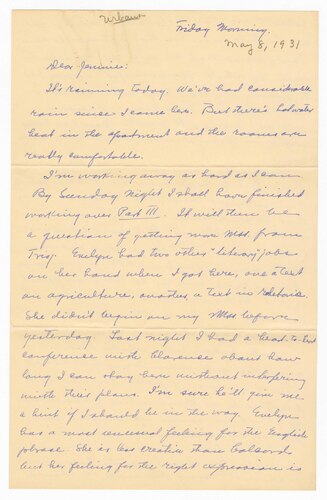 Urbana
Friday Morning.
May 8, 1931
Dear Jennie:
It's raining today. We've had considerable
rain since I came here. But there's hot water
heat in the apartment and the rooms are
really comfortable.
I'm working away as hard as I can.
By Sunday night I shall have finished
working over Part III. It will then be
a question of getting more MSS. from
Troy. Evelyn had two other "literary" jobs
on her hand when I got here, one a text
on agriculture, another a text in rhetoric.
She didn't begin on my MSS before
yesterday. Last night I had a heart-to-heart
conference with Clarence about how
long I can stay here without interfering
with their plans. I'm sure he'll give me
a hint if I should be in the way. Evelyn
has a most unusual feeling for the English
phrase. She is less creative than Colcord
but her feeling for the right expression is